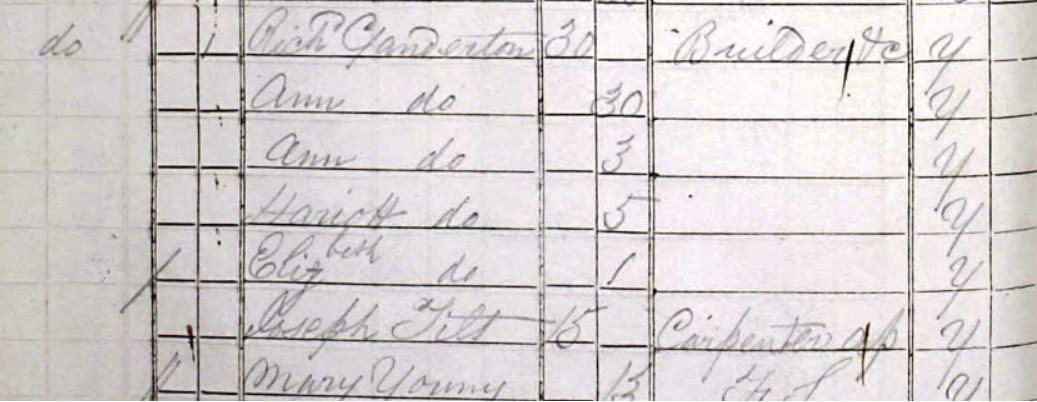 do 1 Richd Ganderton 30 Builder &c Y
Ann do 30 Y
Ann do 3 Y
Hariott do 5 Y
Elizbeth do 1 Y
Joseph Tilt 15 Carpenter ap Y
Mary Young 15 F S Y